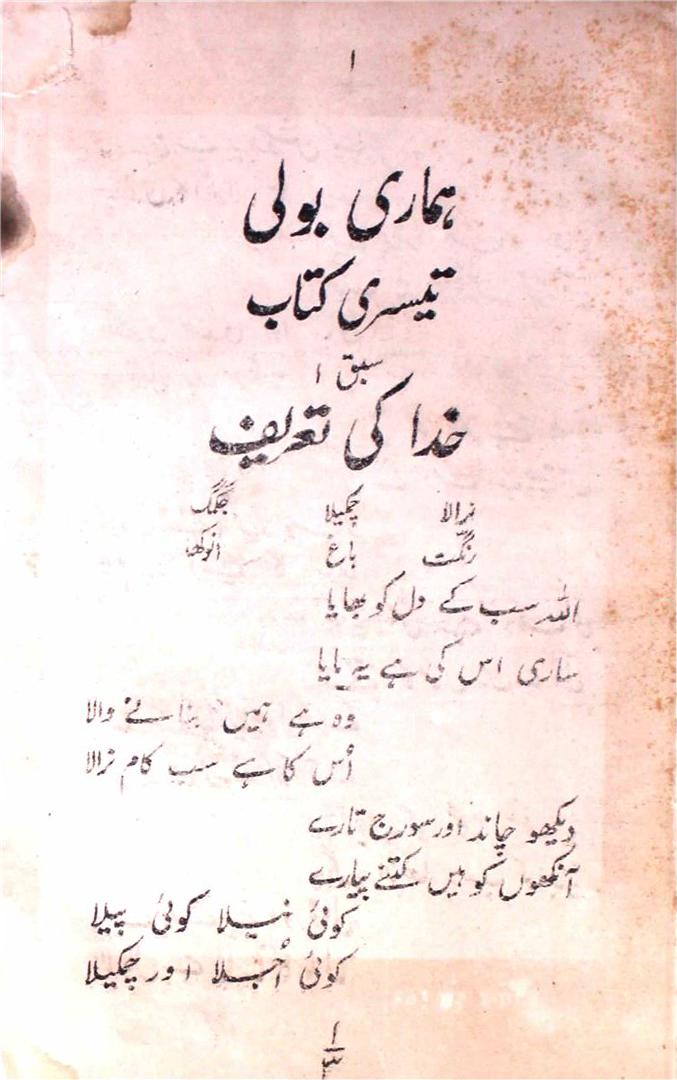 ۱
ہماری بولی
تیسری کتاب
سبق ۱
خدا کی تعریف
نرالا چمکیلا جگمگ
رنگت باغ انوکھا
اللہ سب کے دل کو بھایا
ساری اس کی ہے یہ مایا
وہ ہے ہمیں بنانے والا
اُس کا ہے سب کام نرالا
دیکھو چاند اور سورج تارے
آنکھوں کو ہیں کتنے پیارے
کوئی نیلا کوئی پیلا
کوئی اُجلا اور چمکیلا
۱
۳